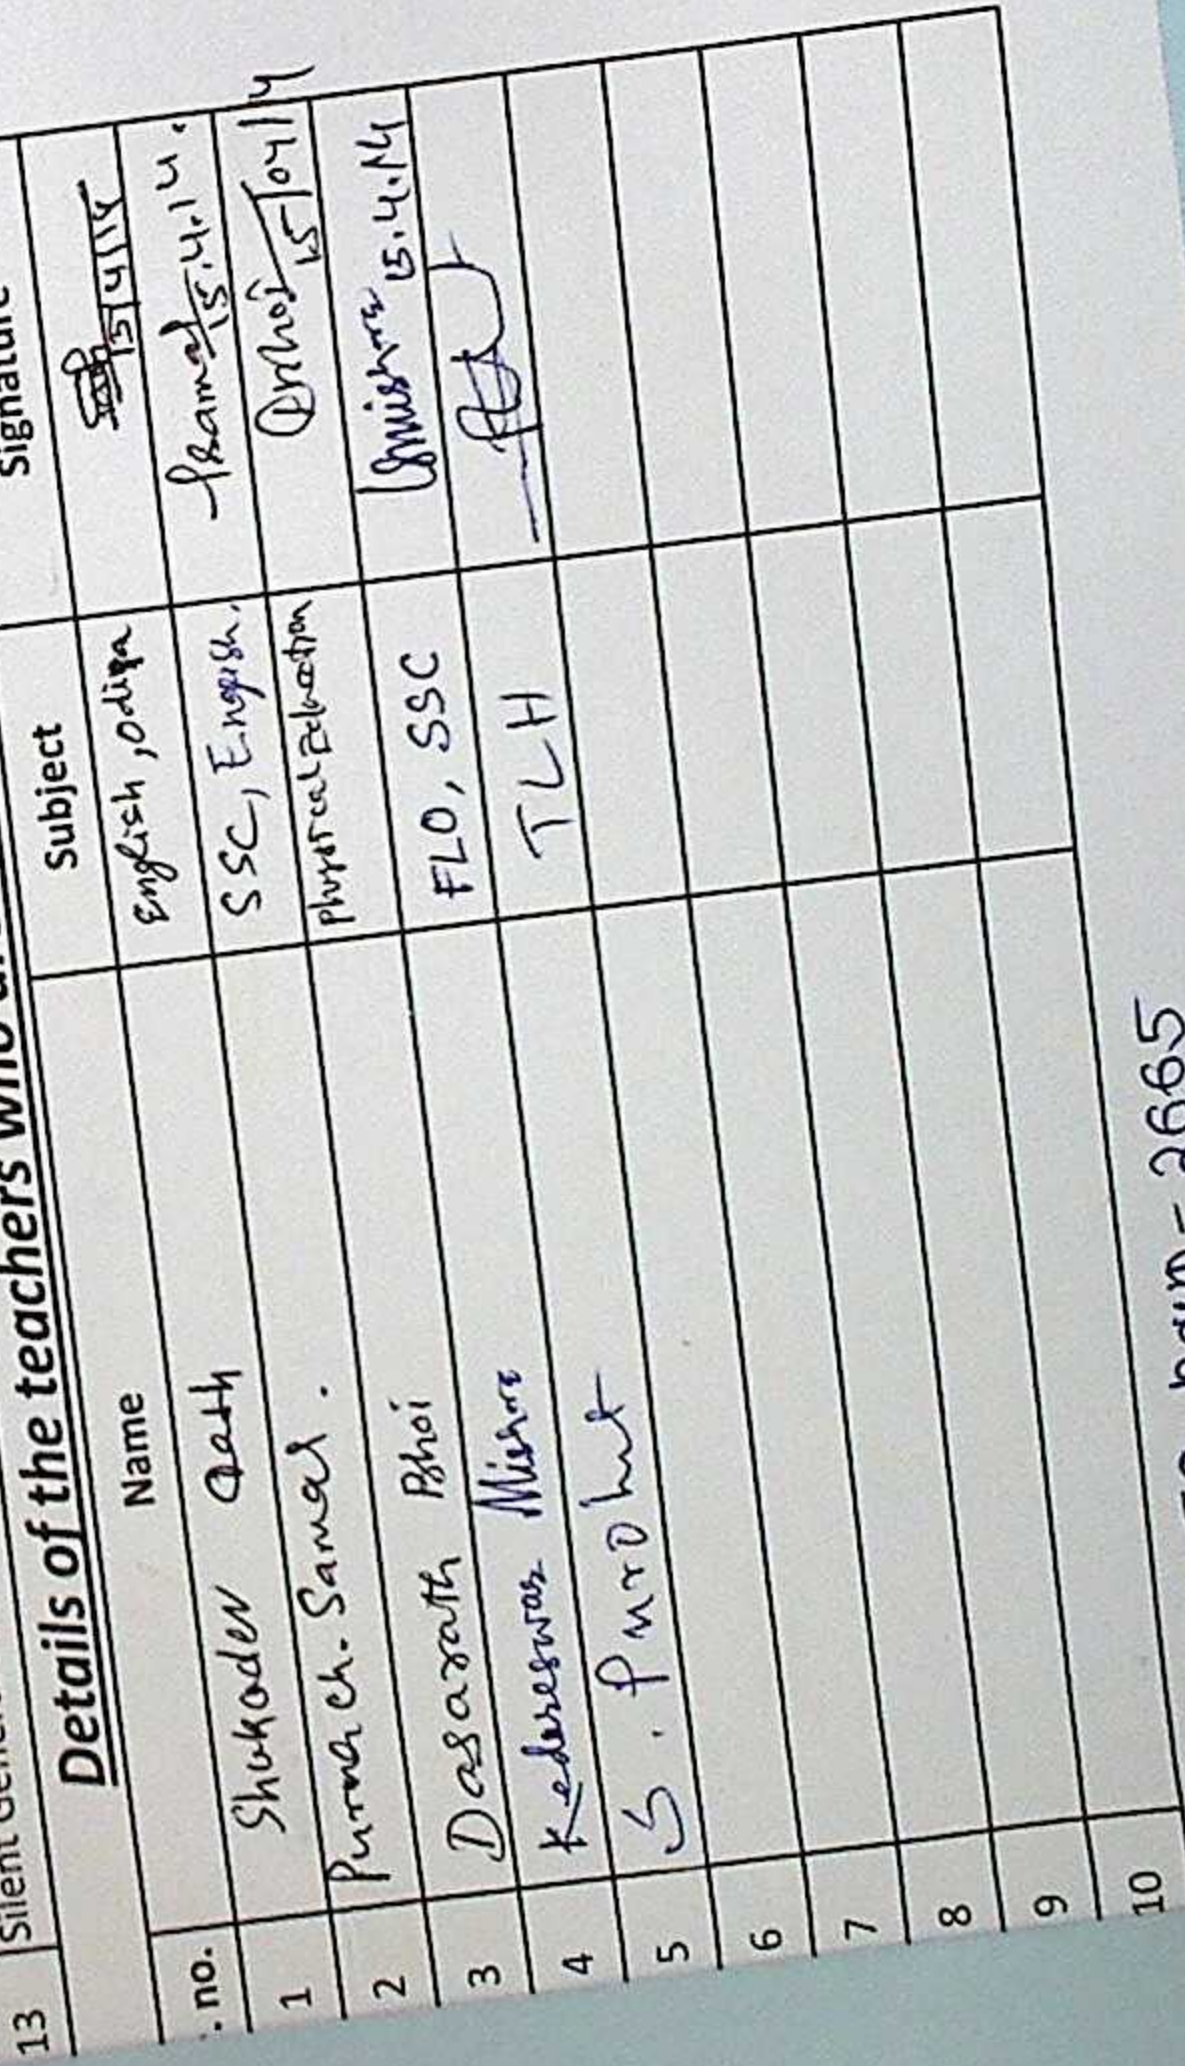 13 Silent Gene
Signature
Details of the teachers who
. no. Name Subject
1 Shukadev English, Odiya 15/4/14
2 Purna Ch. Samal. SSC, English. Samal 15.4.14.
3 Dasarath Bhoi Physical Education DBhoi 15/04/14
4 Kedareswar Mishra FLO, SSC Kmishra 15.4.14
5 S. Purohit TLH
6
7
8
9
10
2665